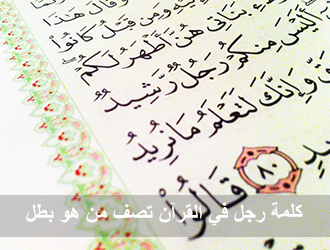 وَقَالَ هَٰذَا
إِلَيْهِ وَمِن قَبْلُ كَانُوا۟
بَنَاتِى هُنَّ أَطْهَرُ لَكُمْ
أَلَيْسَ مِنكُمْ رَجُلٌ رَّشِيدٌ
وَإِنَّكَ لَتَعْلَمُ مَا نُرِيدُ
٨٠ قَالُوا۟
كلمة رجل في القرآن تصف من هو بطل